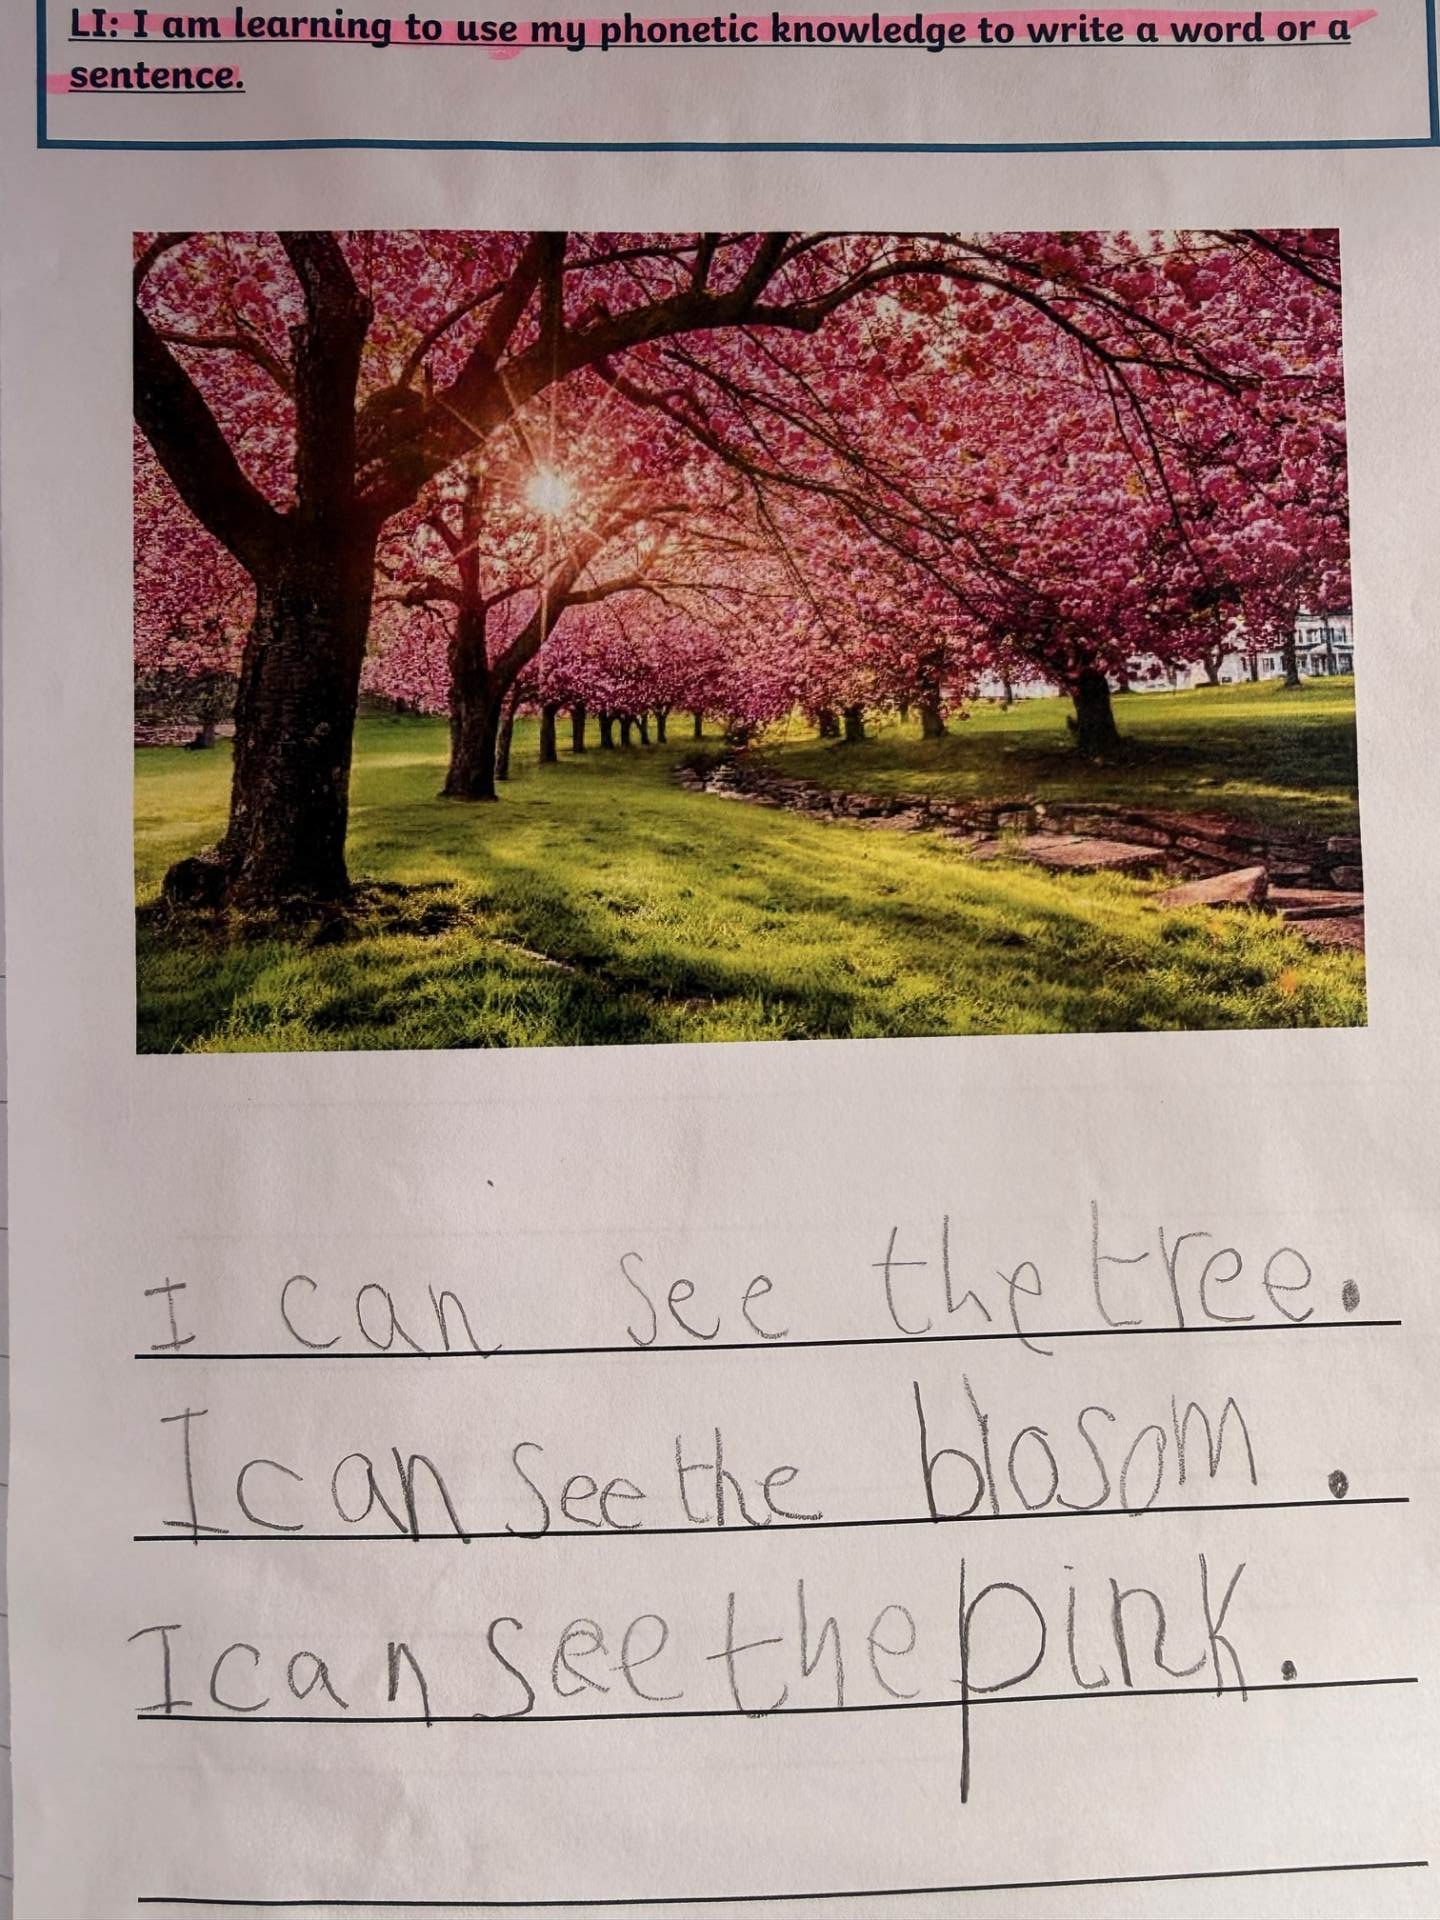 LI: I am learning to use my phonetic knowledge to write a word or a
sentence.
I can see the tree.
I can see the blosom.
I can see the pink.